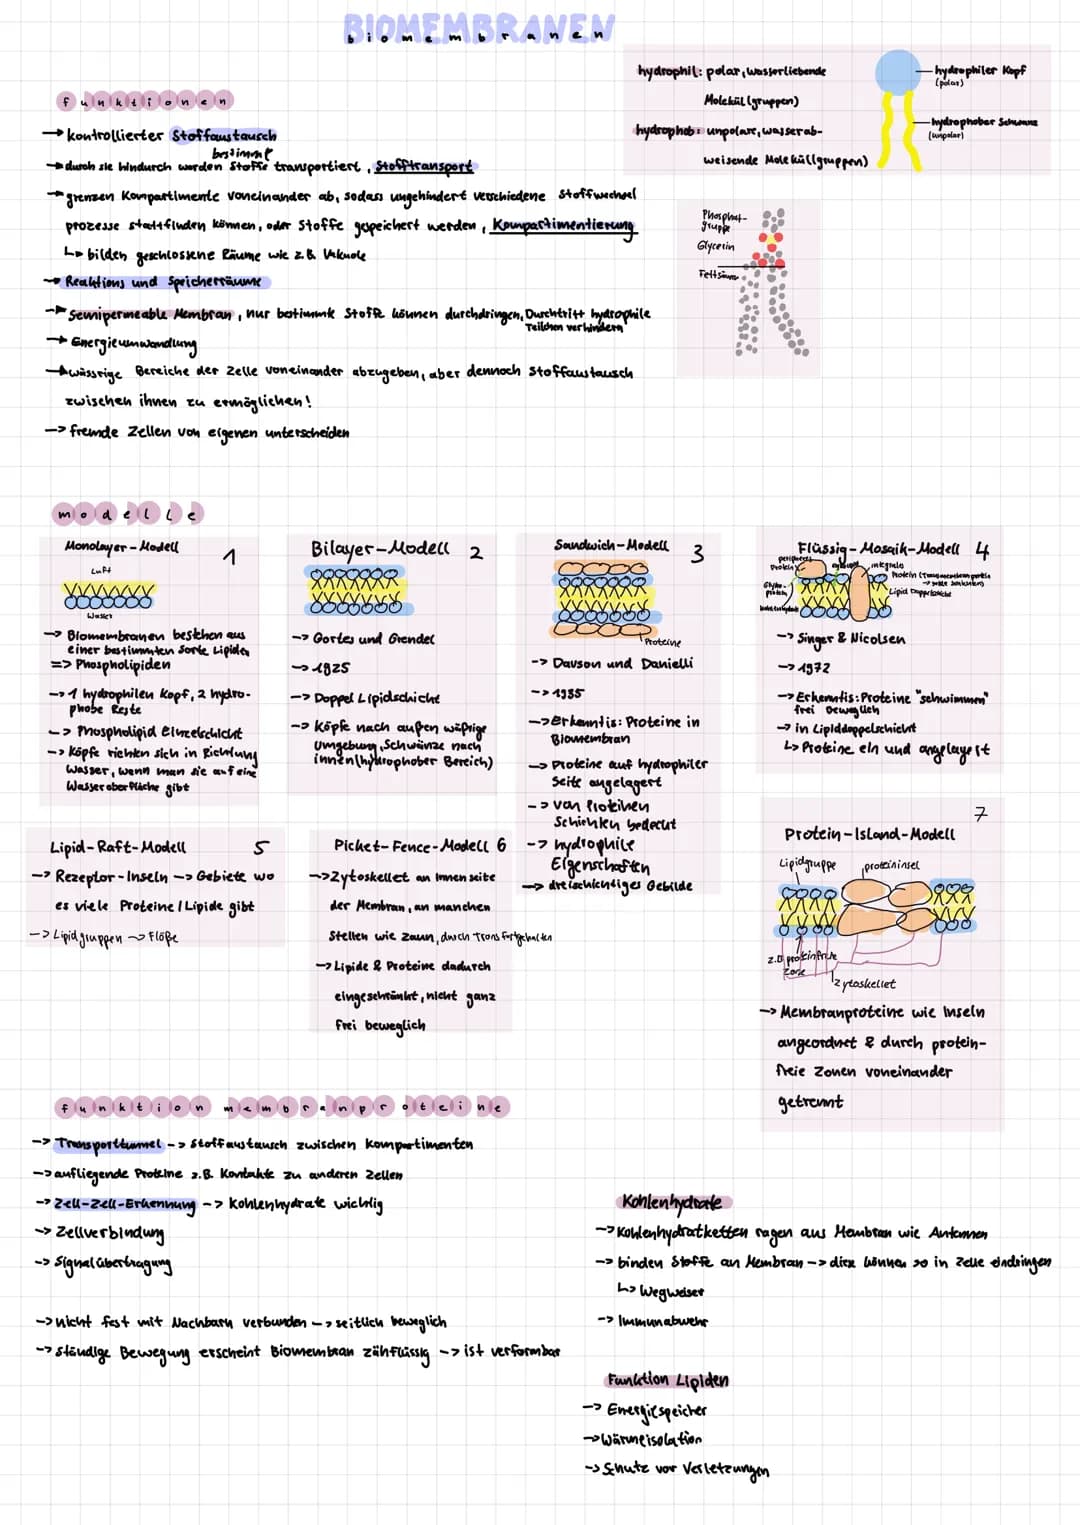 BIOMEMBRANEN
biomembranen
funktionen
→ kontrollierter Stoffaustausch
bestimmte
→ durch sie hindurch werden Stoffe transportiert, Stofftransport
→ grenzen Kompartimente voneinander ab, sodass ungehindert verschiedene Stoffwechsel
prozesse stattfinden können, oder Stoffe gespeichert werden, Kompartimentierung
↳ bilden geschlossene Räume wie z.B. Vakuole
→ Reaktions und Speicherräume
→ Semipermeable Membran, nur bestimmte Stoffe können durchdringen, Durchtritt hydrophile
Teilchen verhindern
→ Energieumwandlung
→ wässrige Bereiche der Zelle voneinander abzugeben, aber dennoch Stoffaustausch
zwischen ihnen zu ermöglichen!
→ fremde Zellen von eigenen unterscheiden
hydrophil: polar, wasserliebende
Molekül (gruppen)
hydrophob: unpolare, wasserab-
weisende Molekül(gruppen)
hydrophiler Kopf
(polar)
hydrophober Schwanz
(unpolar)
Phosphat-
gruppe
Glycerin
Fettsäure
modelle
Monolayer-Modell 1
Luft
Wasser
→ Biomembranen bestehen aus
einer bestimmten Sorte Lipiden
=> Phospholipiden
→ 1 hydrophilen Kopf, 2 hydro-
phobe Reste
-> Phospholipid Einzelschicht
-> Köpfe richten sich in Richtung
Wasser, wenn man sie auf eine
Wasseroberfläche gibt
Bilayer-Modell 2
-> Gortes und Grendel
-> 1925
-> Doppel Lipidschicht
-> Köpfe nach außen wäßrige
Umgebung, Schwänze nach
innen (hydrophober Bereich)
Sandwich-Modell 3
Proteine
-> Davson und Danielli
-> 1935
-> Erkenntis: Proteine in
Biomembran
-> Proteine auf hydrophiler
Seite angelagert
-> von Proteinen
Schichten bedeckt
-> hydrophile
Eigenschaften
-> dreischichtiges Gebilde
Flüssig-Mosaik-Modell 4
peripheres
Protein
integrales
Protein (Transmembranprotein
Glyko-
protein
Lipid Doppelschicht
Kohlenhydrate
-> Singer & Nicolsen
-> 1972
-> Erkenntis: Proteine "schwimmen"
frei beweglich
-> in Lipiddoppelschicht
↳ Proteine ein und angelagert
Lipid-Raft-Modell 5
-> Rezeptor-Inseln -> Gebiete wo
es viele Proteine/Lipide gibt
-> Lipidgruppen -> Flöße
Picket-Fence-Modell 6
-> Zytoskellet an Innenseite
der Membran, an manchen
Stellen wie Zaun, durch Trans fortgehalten
-> Lipide & Proteine dadurch
eingeschränkt, nicht ganz
frei beweglich
7
Protein-Island-Modell
Lipidgruppe
proteininsel
z.B. proteinfreie
Zone
zytoskellet
-> Membranproteine wie Inseln
angeordnet & durch protein-
freie Zonen voneinander
getrennt
funktion membranproteine
-> Transporttunnel -> Stoffaustausch zwischen Kompartimenten
-> aufliegende Proteine z.B. Kontakte zu anderen Zellen
-> Zell-Zell-Erkennung -> Kohlenhydrate wichtig
-> Zellverbindung
-> Signalübertragung
-> nicht fest mit Nachbarn verbunden -> seitlich beweglich
-> ständige Bewegung erscheint Biomembran zähflüssig -> ist verformbar
Kohlenhydrate
-> Kohlenhydratketten ragen aus Membran wie Antennen
-> binden Stoffe an Membran -> diese können so in Zelle eindringen
↳ Wegweiser
-> Immunabwehr
Funktion Lipiden
-> Energiespeicher
-> Wärmeisolation
-> Schutz vor Verletzungen